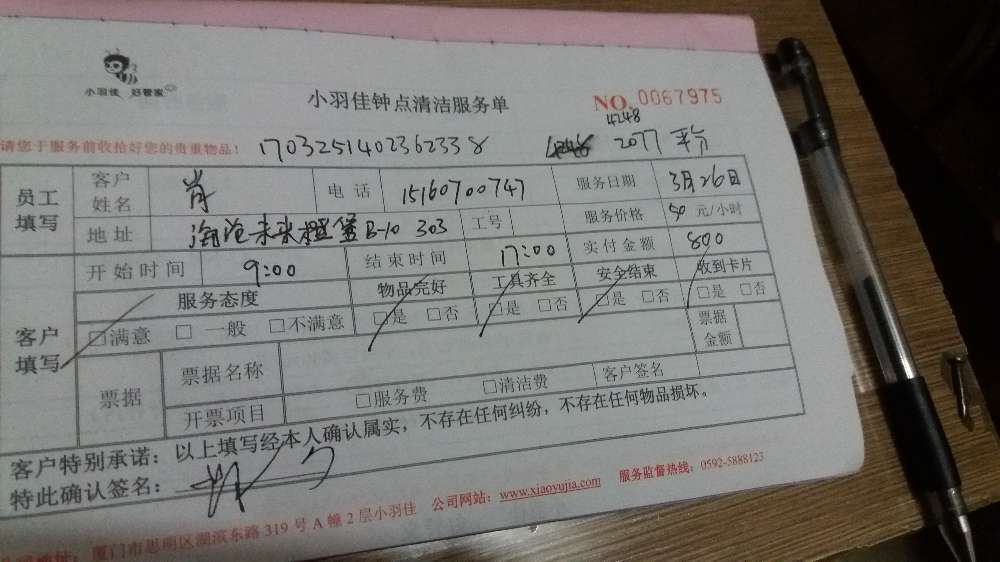 小羽佳 好管家
小羽佳钟点清洁服务单
NO. 0067975
请您于服务前收拾好您的贵重物品！
1703251402362338
4248
2077
员工填写
客户姓名 肖 电话 15160700747 服务日期 3月26日
地址 海沧未来橙堡B-10 303 工号 服务价格 50 元/小时
客户填写
开始时间 9:00 结束时间 17:00 实付金额 800
服务态度 物品完好 工具齐全 安全结束 收到卡片
□满意 □一般 □不满意 □是 □否 □是 □否 □是 □否 □是 □否
票据 票据名称 票据金额
开票项目 □服务费 □清洁费 客户签名
客户特别承诺：以上填写经本人确认属实，不存在任何纠纷，不存在任何物品损坏。
特此确认签名：
地址：厦门市思明区湖滨东路319号A幢2层小羽佳 公司网站：www.xiaoyujia.com 服务监督热线：0592-5888123